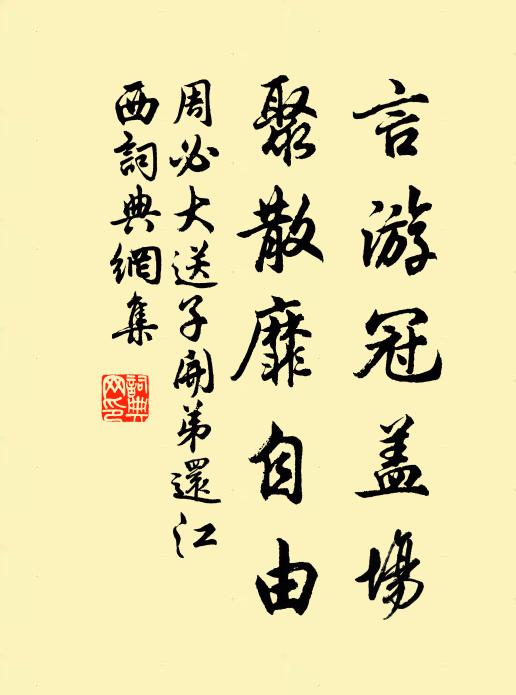 言游冠盖場
聚散靡自由
周必大送子開弟還江
西詞典網集
詞典網印